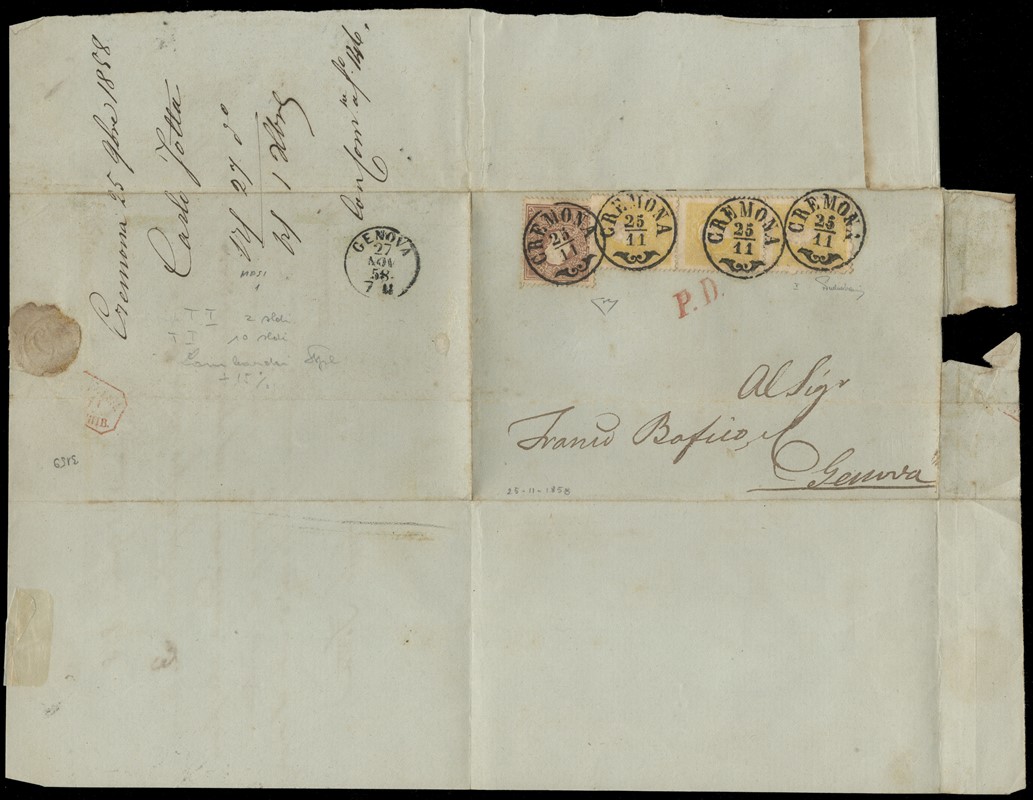 Cremona 25 9bre 1858
Carlo Jotta
27 do
1 Xbre
146.
GENOVA
27
NOV
58
7 M
MASI
I I 2 soldi
I I 10 soldi
+ 15%
DIB.
6313
CREMONA
25
11
CREMONA
25
11
CREMONA
25
11
CREMONA
25
11
P.D.
Al Sigr
Franco Bafico,
Genova
25-11-1858